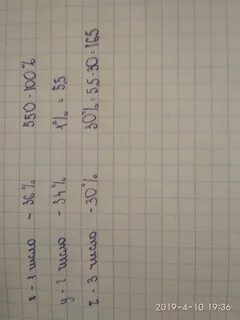 x - 1 число - 36% 550 - 100%
y - 2 число - 34% 1% = 5,5
z - 3 число - 30% 30% = 5,5·30 = 165
2019-4-10 19:36